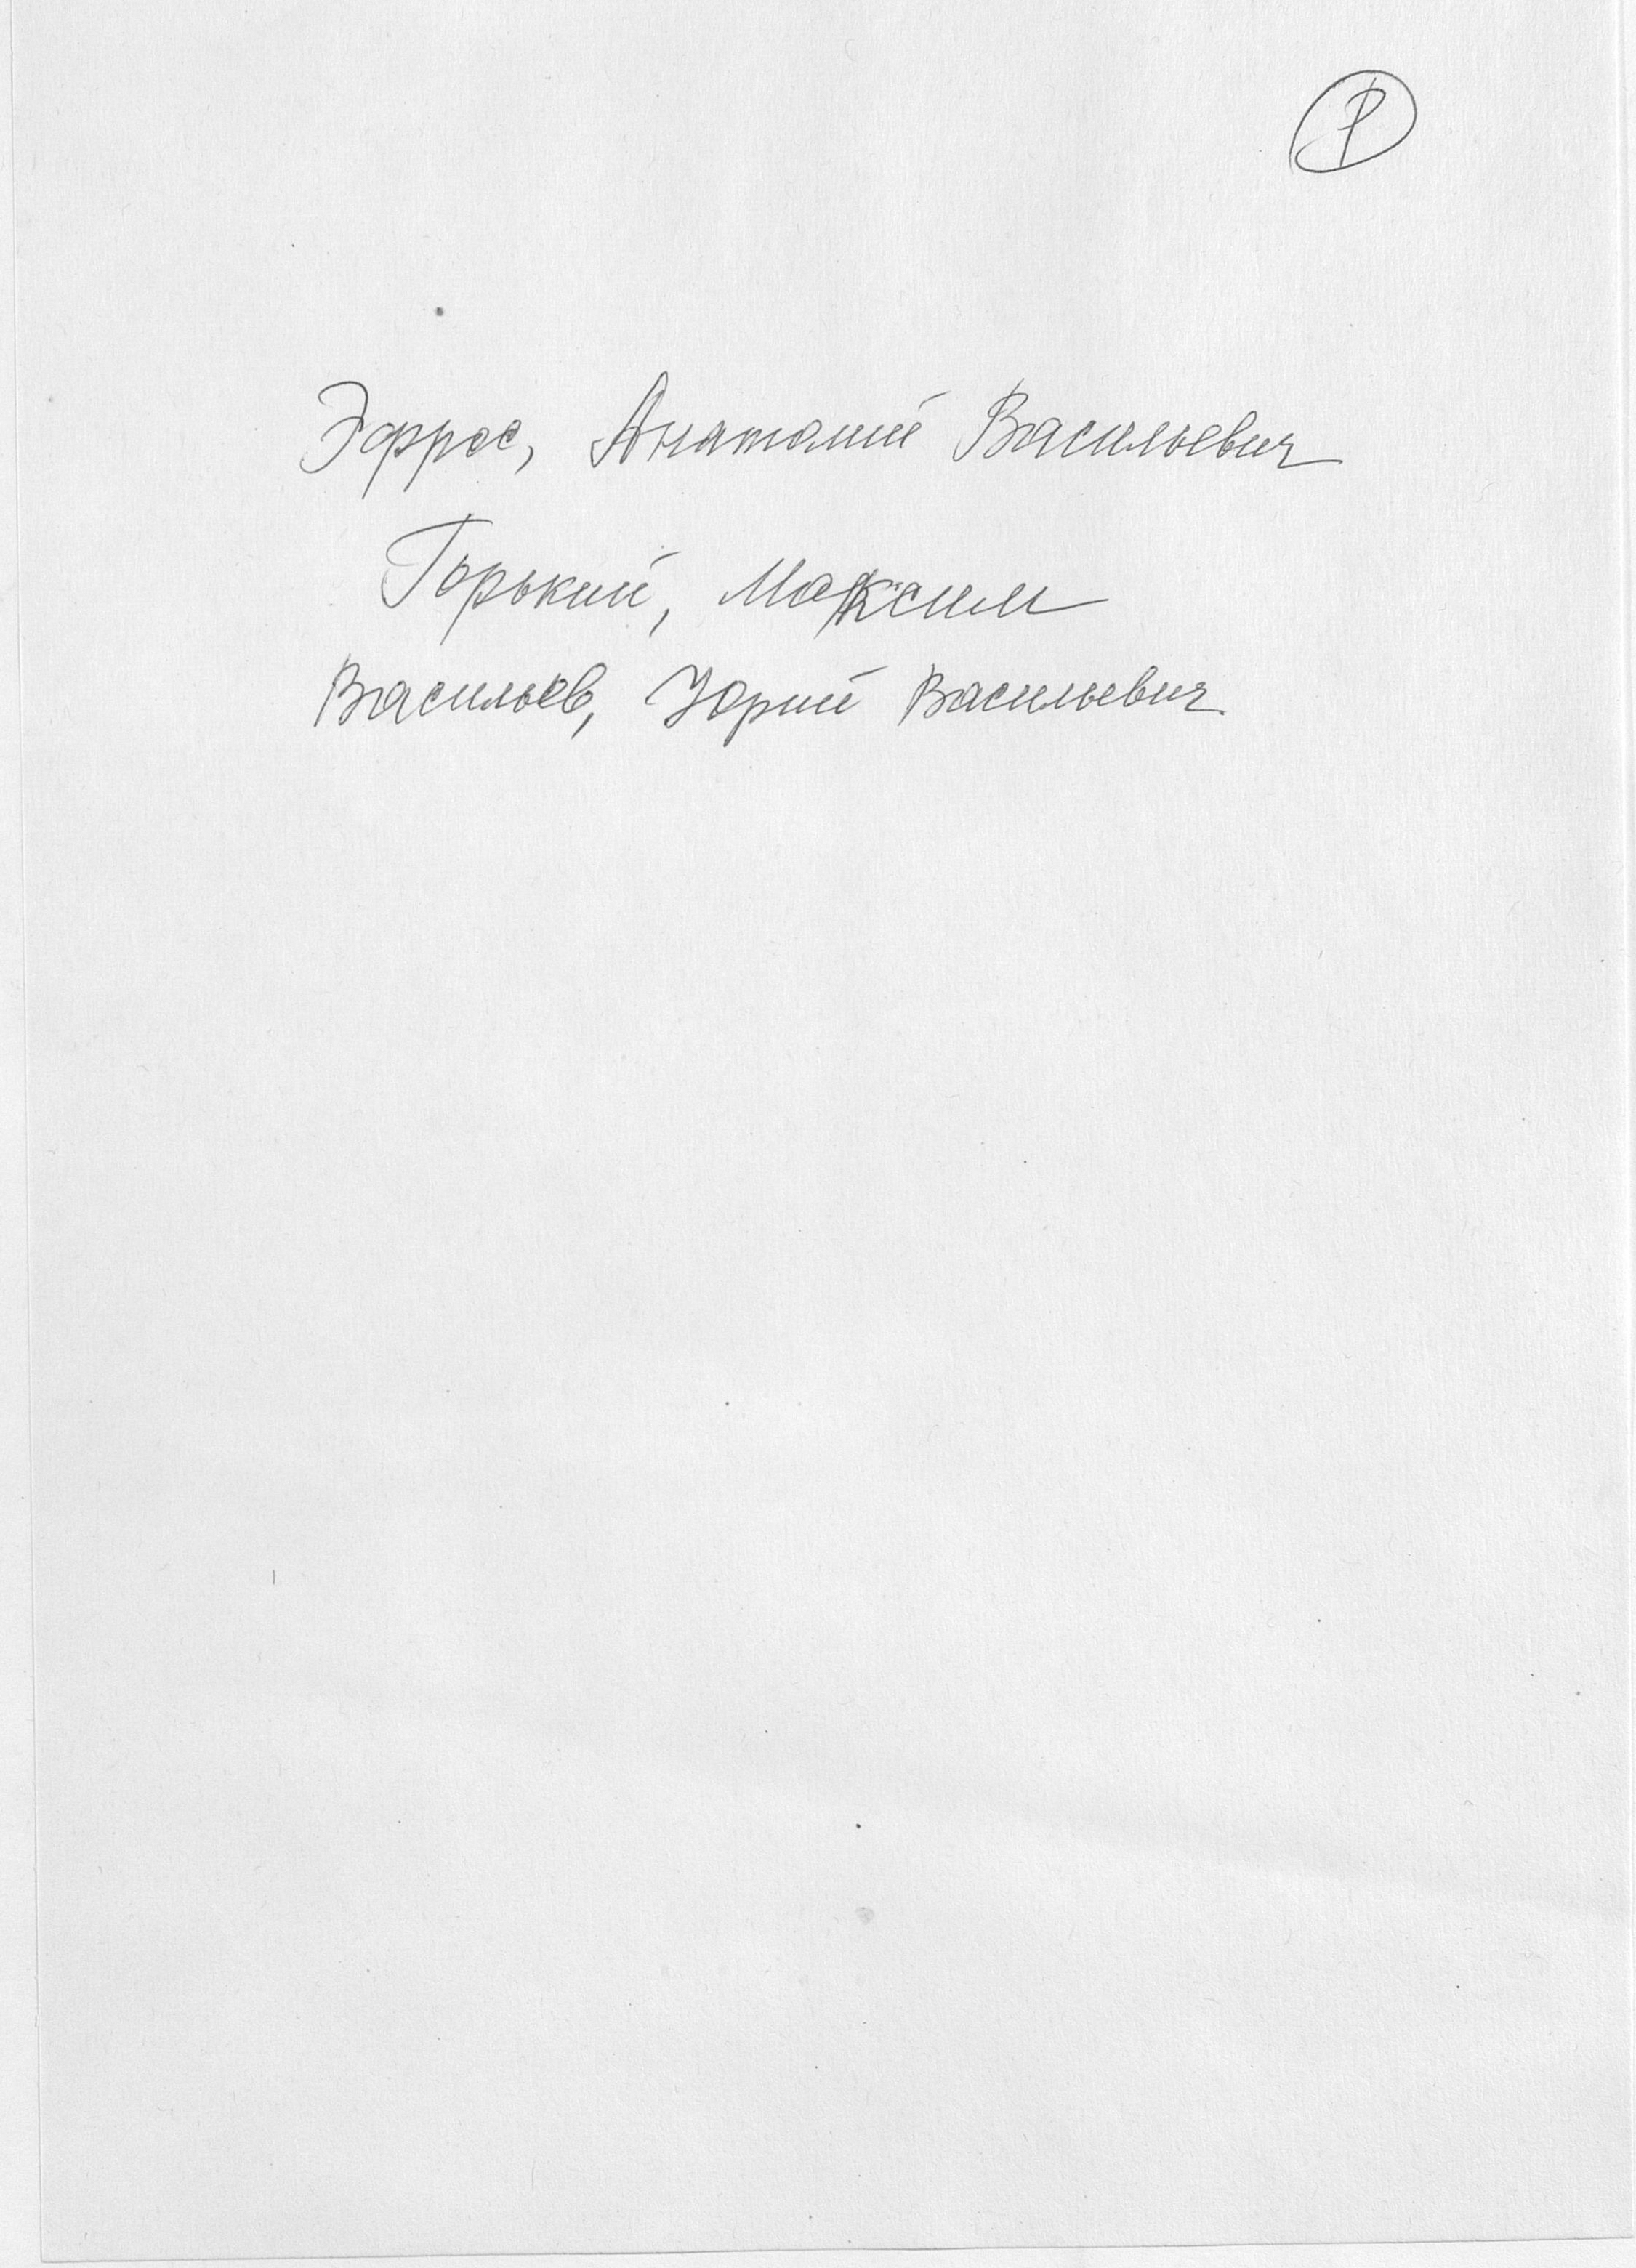 Р
Эфрос, Анатолий Васильевич
Горький, Максим
Васильев, Юрий Васильевич